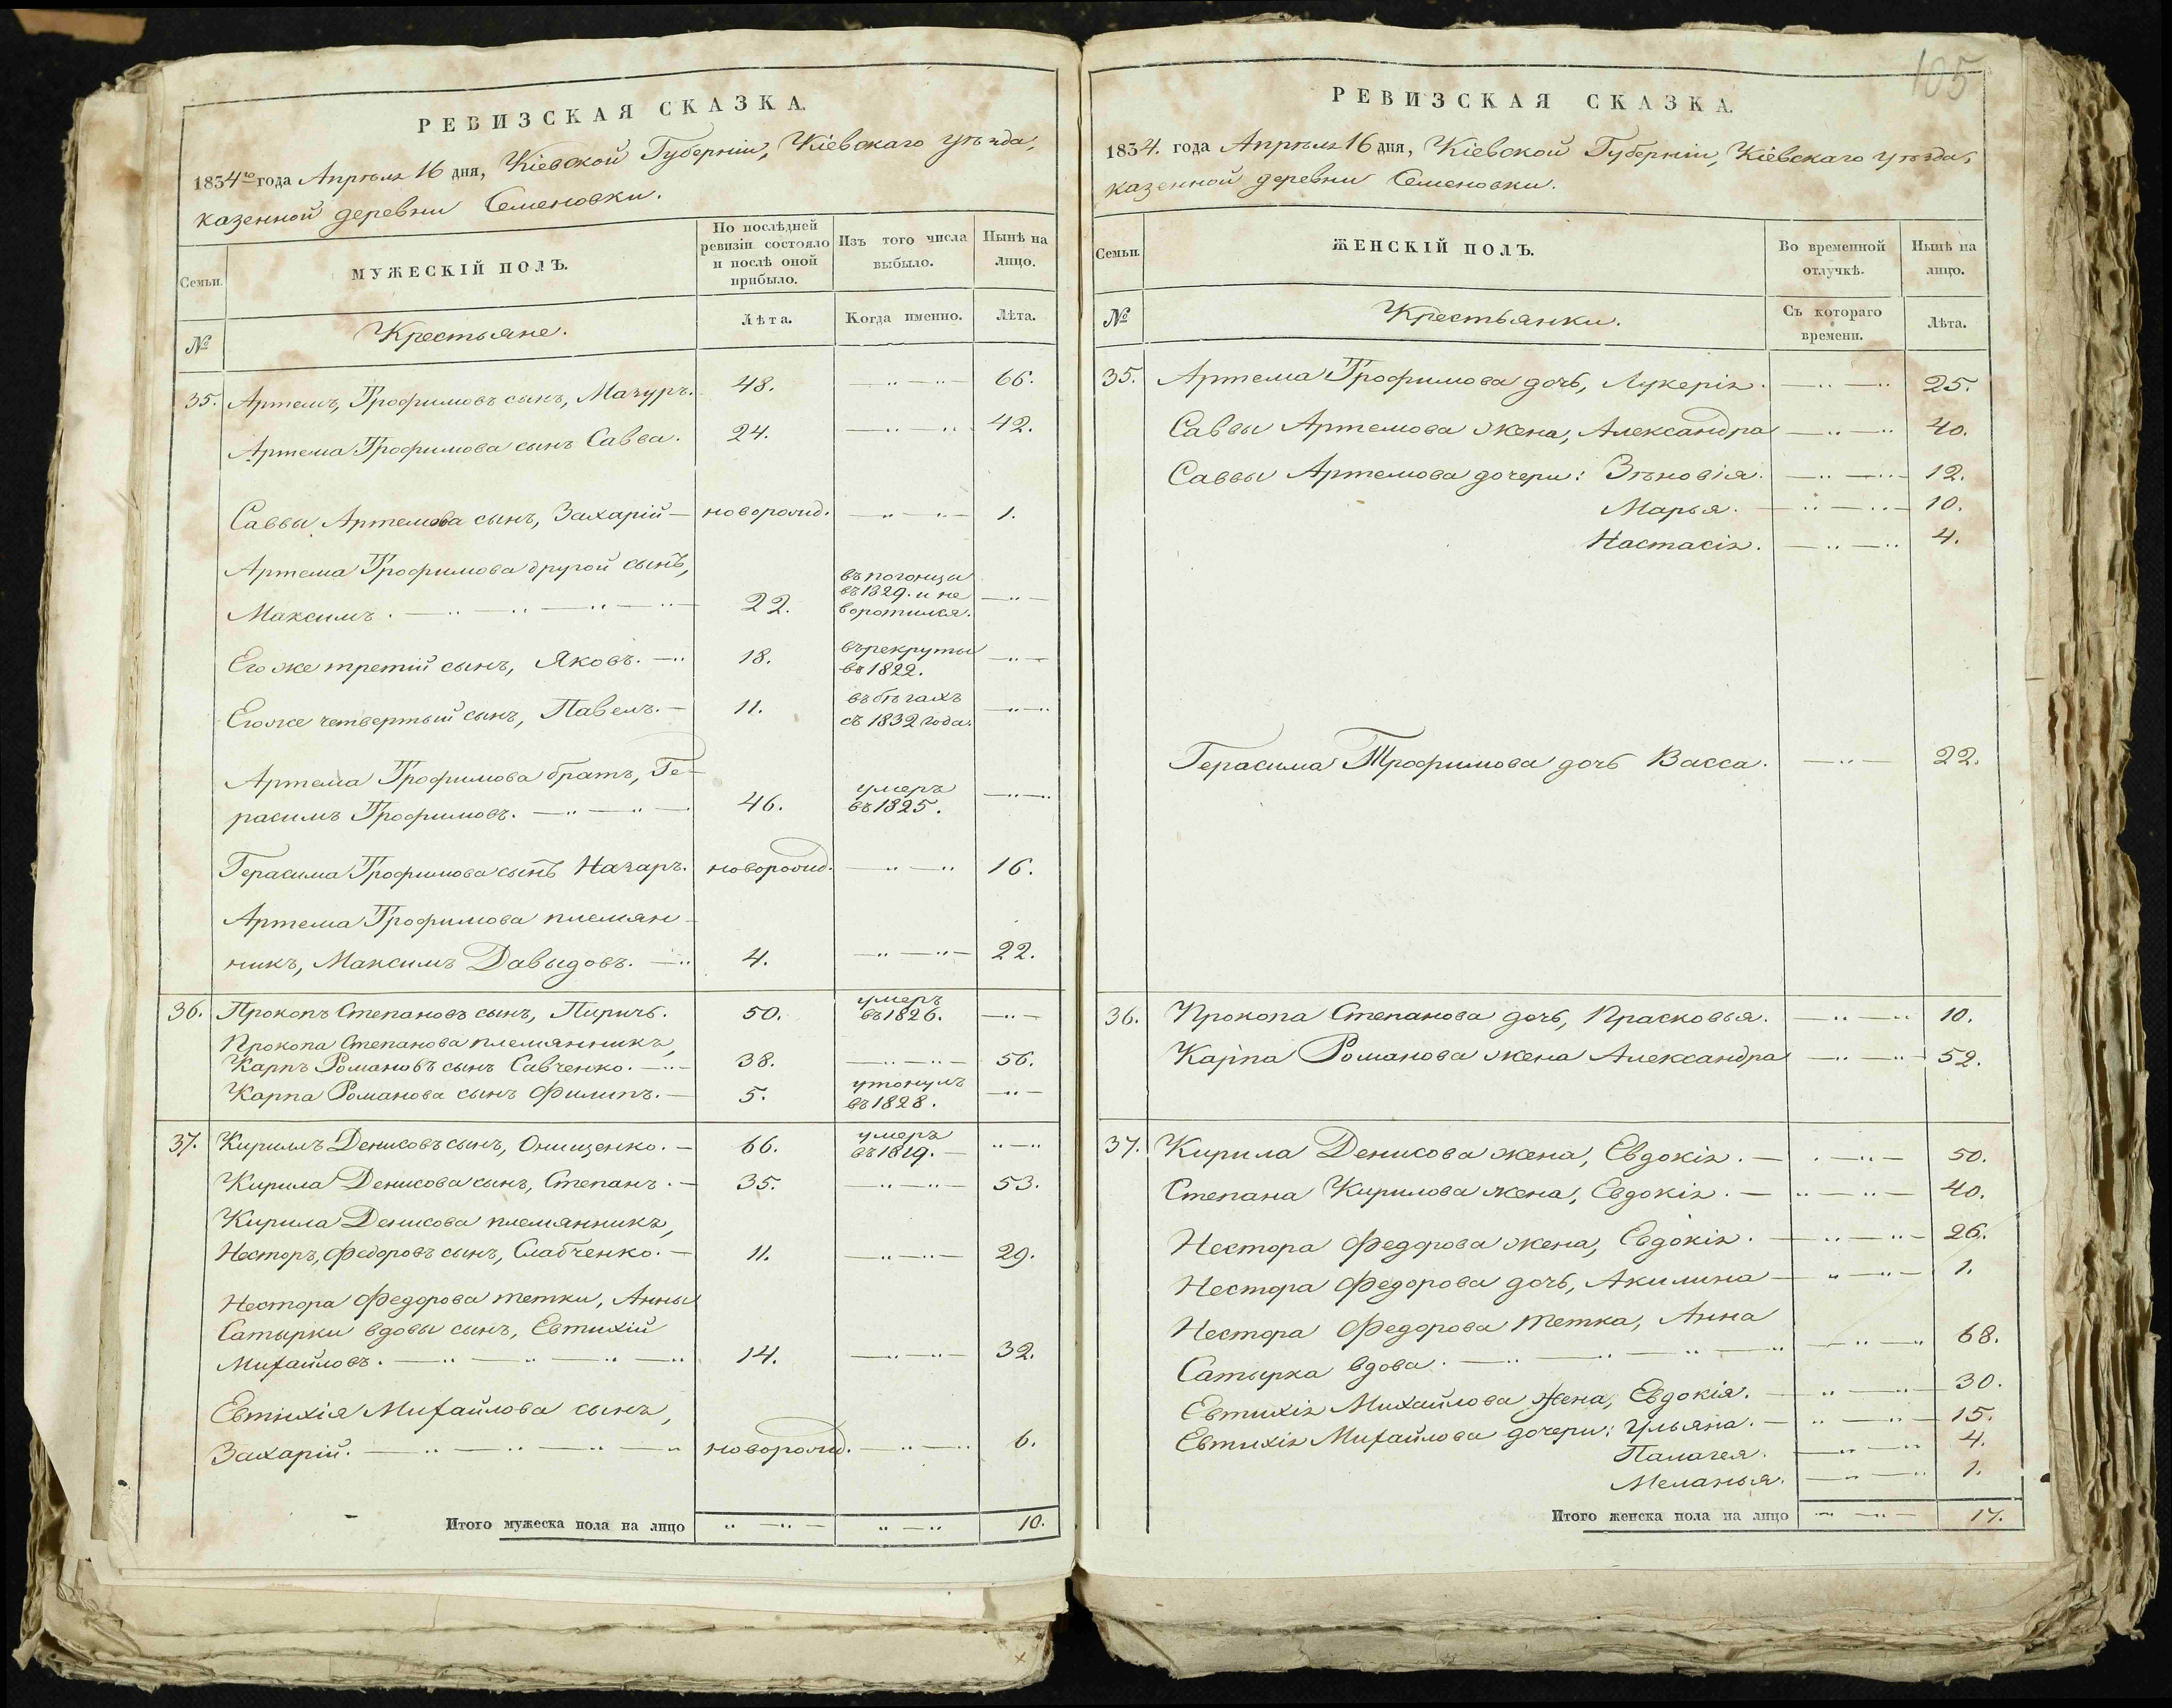 РЕВИЗСКАЯ СКАЗКА.
1834го года Апрѣля 16 дня, Кіевской Губерніи, Кіевскаго уѣзда,
казенной деревни Семеновки.
Семьи.
МУЖЕСКІЙ ПОЛЪ.
По послѣдней
ревизіи состояло
и послѣ оной
прибыло.
Изъ того числа
выбыло.
Нынѣ на
лицо.
№
Крестьяне.
Лѣта.
Когда именно.
Лѣта.
35. Артемъ, Трофимовъ сынъ, Мачуръ. 48. —„—„— 66.
Артема Трофимова сынъ Савва. 24. —„—„ 42.
Саввы Артемова сынъ, Захарій — новорожд. —„—„— 1.
Артема Трофимова другой сынъ,
Максимъ. —„—„—„—„— 22. въ погонцы въ 1829. и не воротился. —„—
Его же третій сынъ, Яковъ. —„ 18. въ рекруты въ 1822. —„—
Его же четвертый сынъ, Павелъ. — 11. въ бѣгахъ съ 1832 года. —„—„
Артема Трофимова братъ, Ге-
расимъ Трофимовъ. —„—„— 46. умеръ въ 1825. —„—„
Герасима Трофимова сынъ Назаръ. новорожд. —„—„ 16.
Артема Трофимова племян-
никъ, Максимъ Давыдовъ. —„ 4. —„—„— 22.
36. Прокопъ Степановъ сынъ, Пиричъ. 50. умеръ въ 1826. —„—
Прокопа Степанова племянникъ,
Карпъ Романовъ сынъ Савченко. —„— 38. —„—„— 56.
Карпа Романова сынъ Филипъ. — 5. утонулъ въ 1828. —„—
37. Кирилъ Денисовъ сынъ, Онищенко. — 66. умеръ въ 1819. — „—„
Кирила Денисова сынъ, Степанъ. — 35. —„—„— 53.
Кирила Денисова племянникъ,
Несторъ, Федоровъ сынъ, Слабченко. — 11. „—„— 29.
Нестора Федорова тетки, Анны
Сатырки вдовы сынъ, Евтихій
Михайловъ. —„—„—„—„ 14. —„—„— 32.
Евтихія Михайлова сынъ,
Захарій. —„—„—„—„ новорожд. —„—„ 6.
Итого мужеска пола на лицо „—„— „—„ 10.
105
РЕВИЗСКАЯ СКАЗКА.
1834. года Апрѣля 16 дня, Кіевской Губерніи, Кіевскаго уѣзда,
казенной деревни Семеновки.
Семьи.
ЖЕНСКІЙ ПОЛЪ.
Во временной
отлучкѣ.
Нынѣ на
лицо.
№
Крестьянки.
Съ котораго
времени.
Лѣта.
35. Артема Трофимова дочь, Лукерія. —„—„ 25.
Саввы Артемова жена, Александра —„—„ 40.
Саввы Артемова дочери: Зѣновія. —„—„— 12.
Марья. —„—„— 10.
Настасія. —„—„ 4.
Герасима Трофимова дочь Васса. —„— 22.
36. Прокопа Степанова дочь, Прасковья. —„—„ 10.
Карпа Романова жена Александра —„—„ 52.
37. Кирила Денисова жена, Евдокія. — „—„— 50.
Степана Кирилова жена, Евдокія. — „—„— 40.
Нестора Федорова жена, Евдокія. —„—„— 26.
Нестора Федорова дочь, Акилина —„—„— 1.
Нестора Федорова тетка, Анна
Сатырка вдова. —„—„—„—„—„—„ 68.
Евтихія Михайлова жена, Евдокія. —„—„— 30.
Евтихія Михайлова дочери: Ульяна. —„—„— 15.
Палагея. —„—„ 4.
Меланья. —„—„ 1.
Итого женска пола на лицо —„— 17.